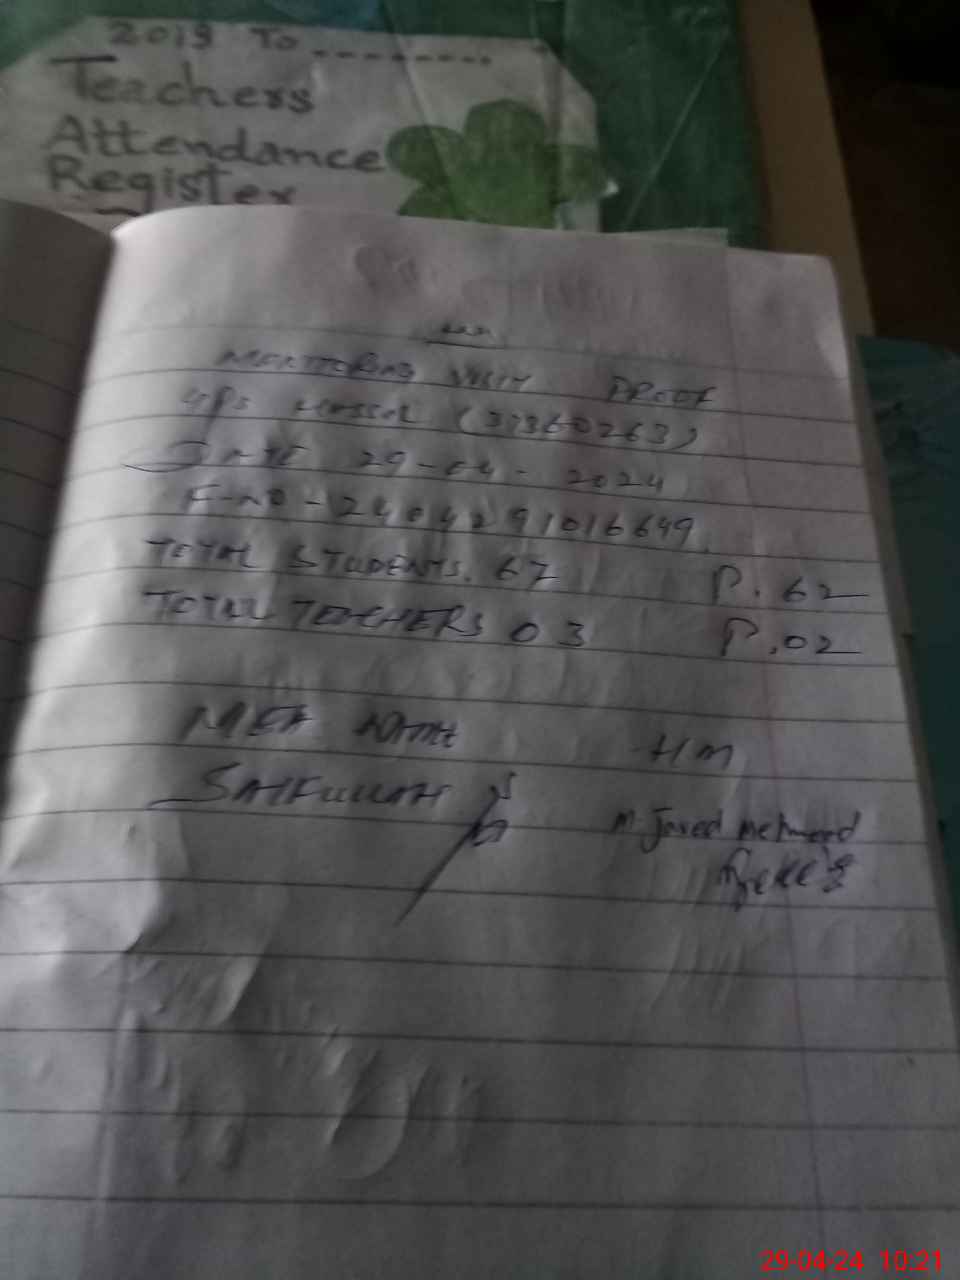 2019 To
Teachers
Attendance
Register
VISIT PROOF
GPS (37360263)
DATE 29-04-2024
F-NO-2404291016649
TOTAL STUDENTS. 67 P. 62
TOTAL TEACHERS 03 P.02
MEA NAME HM
SAIFULLAH M. Javed Mehmood
29-04-24 10:21